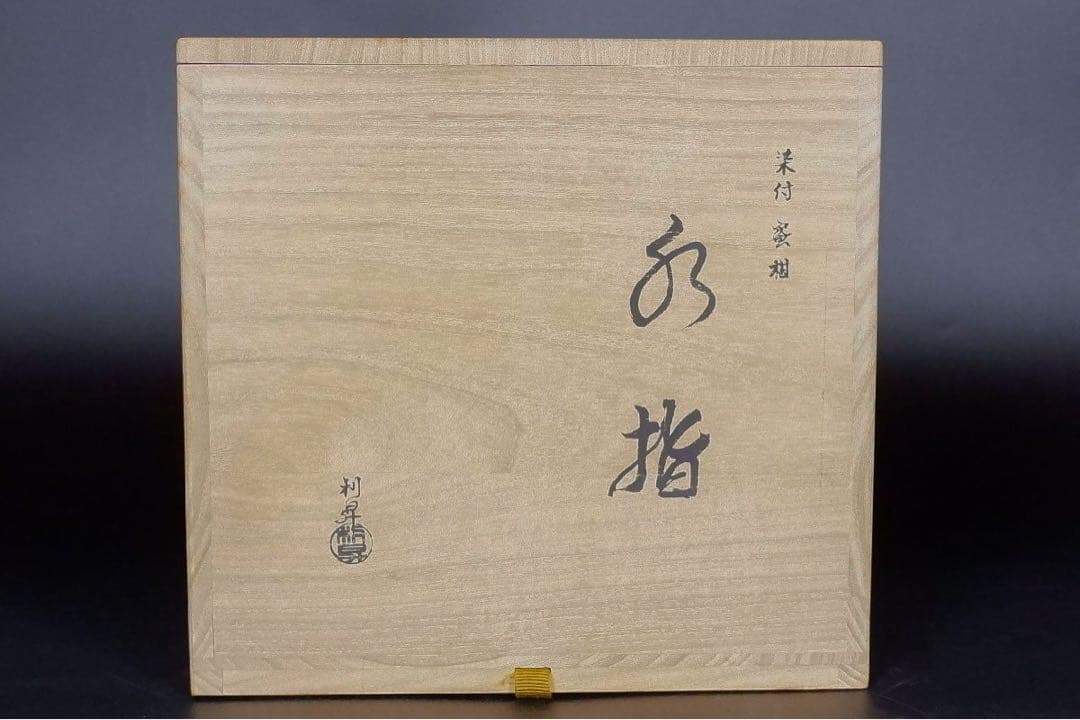 染付 蜜柑
水指
利昇